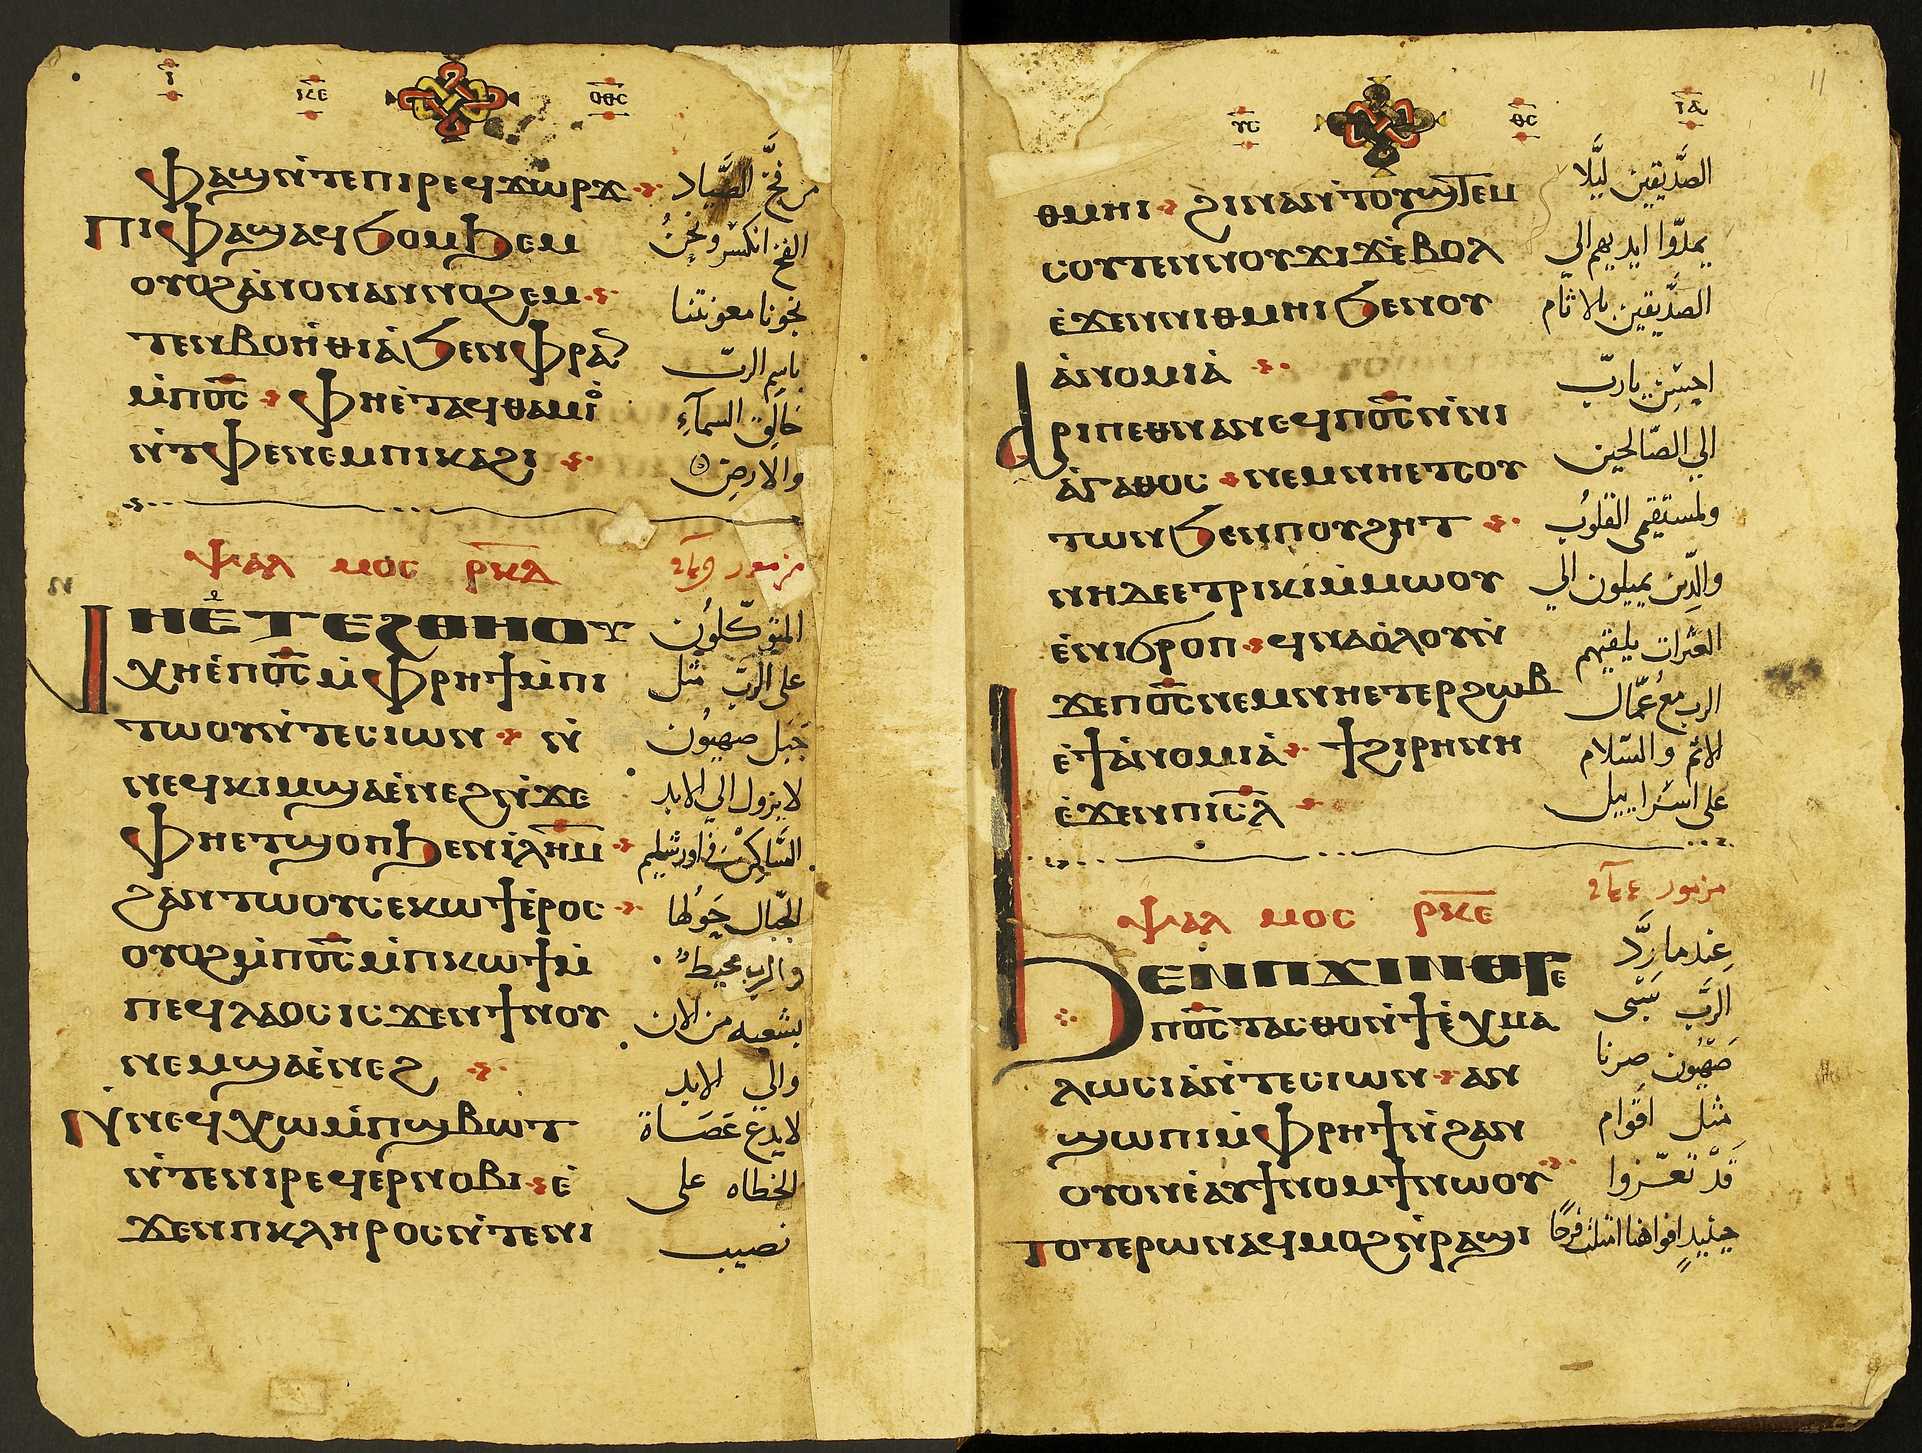 ⲓ ⲓⲥⲉ ⲟⲑⲥ
ⲫⲁϣ ⲛ̀ⲧⲉ ⲡⲓⲣⲉϥϫⲱⲣϫ
ⲡⲓⲫⲁϣ ⲁϥϧⲟⲙϧⲉⲙ
ⲟⲩⲟϩ ⲁ̀ⲛⲟⲛ ⲁⲛⲛⲟϩⲉⲙ
ⲧⲉⲛⲃⲟⲏ̀ⲑⲓⲁ̀ ϧⲉⲛ ⲫⲣⲁⲛ
ⲙ̀ⲡⲟ̅ⲥ̅ ⲫⲏⲉ̀ⲧⲁϥⲑⲁⲙⲓⲟ̀
ⲛ̀ⲧⲫⲉ ⲛⲉⲙ ⲡⲓⲕⲁϩⲓ
ⲯⲁⲗⲙⲟⲥ ⲣ̅ⲕ̅ⲇ̅
ⲛⲏⲉ̀ⲧⲉϩⲑⲏⲟⲩ
ⲭⲏ ⲉ̀ⲡⲟ̅ⲥ̅ ⲙ̀ⲫⲣⲏϯ ⲙ̀ⲡⲓ
ⲧⲱⲟⲩ ⲛ̀ⲧⲉ ⲥⲓⲱⲛ ⲛ̀
ⲛⲉϥⲕⲓⲙ ϣⲁ ⲉ̀ⲛⲉϩ ⲛ̀ϫⲉ
ⲫⲏⲉⲧϣⲟⲡ ϧⲉⲛ ⲓ̅ⲗ̅ⲏ̅ⲙ̅
ϩⲁⲛⲧⲱⲟⲩ ⲥⲉⲕⲱϯ ⲉ̀ⲣⲟⲥ
ⲟⲩⲟϩ ⲙ̀ⲡⲟ̅ⲥ̅ ⲙ̀ⲡⲕⲱϯ ⲙ̀
ⲡⲉϥⲗⲁⲟⲥ ⲓⲥϫⲉⲛ ϯⲛⲟⲩ
ⲛⲉⲙ ϣⲁ ⲉ̀ⲛⲉϩ
ⲛ̀ⲛⲉϥⲭⲱ ⲙ̀ⲡϣⲃⲱⲧ
ⲛ̀ⲧⲉ ⲛⲓⲣⲉϥⲉⲣⲛⲟⲃⲓ ⲉ̀
ϫⲉⲛ ⲡⲕⲗⲏⲣⲟⲥ ⲛ̀ⲧⲉ ⲛⲓ
من فخّ الصيّاد
الفخ انكسر ونحن
نجونا معونتنا
باسم الربّ
خالق السمآء
والارض
مزمور
المتوكّلون
على الربّ مثل
جبل صهيون
لا يزول الي الابد
السّاكن في اورشليم
الجبال حولها
والرب محيط
بشعبه من الان
والي الابد
لا يدع عصاة
الخطاه على
نصيب
11
ⲩⲥ ⲑⲥ ⲓⲁ
ⲑⲙⲏⲓ ϩⲓⲛⲁ ⲛ̀ⲧⲟⲩϣⲧⲉⲙ
ⲥⲟⲩⲧⲉⲛ ⲛⲟⲩϫⲓϫ ⲉ̀ⲃⲟⲗ
ⲉ̀ϫⲉⲛ ⲛⲓⲑⲙⲏⲓ ϧⲉⲛ ⲟⲩ
ⲁ̀ⲛⲟⲙⲓⲁ̀
ⲁⲣⲓⲡⲉⲑⲛⲁⲛⲉϥ ⲡⲟ̅ⲥ̅ ⲛ̀ⲛⲓ
ⲁ̀ⲅⲁⲑⲟⲥ ⲛⲉⲙ ⲛⲏⲉⲧⲥⲟⲩ
ⲧⲱⲛ ϧⲉⲛ ⲡⲟⲩϩⲏⲧ
ⲛⲏ ⲇⲉ ⲉⲧⲣⲓⲕⲓ ⲙ̀ⲙⲱⲟⲩ
ⲉ̀ⲛⲓϭⲣⲟⲡ ϥⲛⲁⲟ̀ⲗⲟⲩ ⲛ̀
ϫⲉ ⲡⲟ̅ⲥ̅ ⲛⲉⲙ ⲛⲏⲉⲧⲉⲣϩⲱⲃ
ⲉ̀ϯⲁ̀ⲛⲟⲙⲓⲁ̀ ϯϩⲓⲣⲏⲛⲏ
ⲉ̀ϫⲉⲛ ⲡⲓ̅ⲥ̅ⲗ̅
ⲯⲁⲗⲙⲟⲥ ⲣ̅ⲕ̅ⲉ̅
ϧⲉⲛ ⲡϫⲓⲛⲑⲣⲉ
ⲡⲟ̅ⲥ̅ ⲧⲁⲥⲑⲟ ⲛ̀ϯⲉ̀ⲭⲙⲁ
ⲗⲱⲥⲓⲁ̀ ⲛ̀ⲧⲉ ⲥⲓⲱⲛ ⲁⲛ
ϣⲱⲡⲓ ⲙ̀ⲫⲣⲏϯ ⲛ̀ϩⲁⲛ
ⲟⲩⲟⲛ ⲉ̀ⲁⲩϯⲛⲟⲙϯ ⲛⲱⲟⲩ
ⲧⲟⲧⲉ ⲣⲱⲛ ⲁϥⲙⲟϩ ⲛ̀ⲣⲁϣⲓ
الصّديقين ليّلا
يمدّوا ايديهم الى
الصّديقين بالاثام
احسن يا ربّ
الي الصّالحين
ولمستقيمى القلوب
والذين يميلون الي
العثرات يلقيهم
الرب مع عمّال
الاثم والسّلام
على اسراييل
مزمور
عندما ردّ
الربّ سبى
صهيون صرنا
مثل اقوام
قد تعزوا
حينيدٍ افواهنا امتلت فرحًا